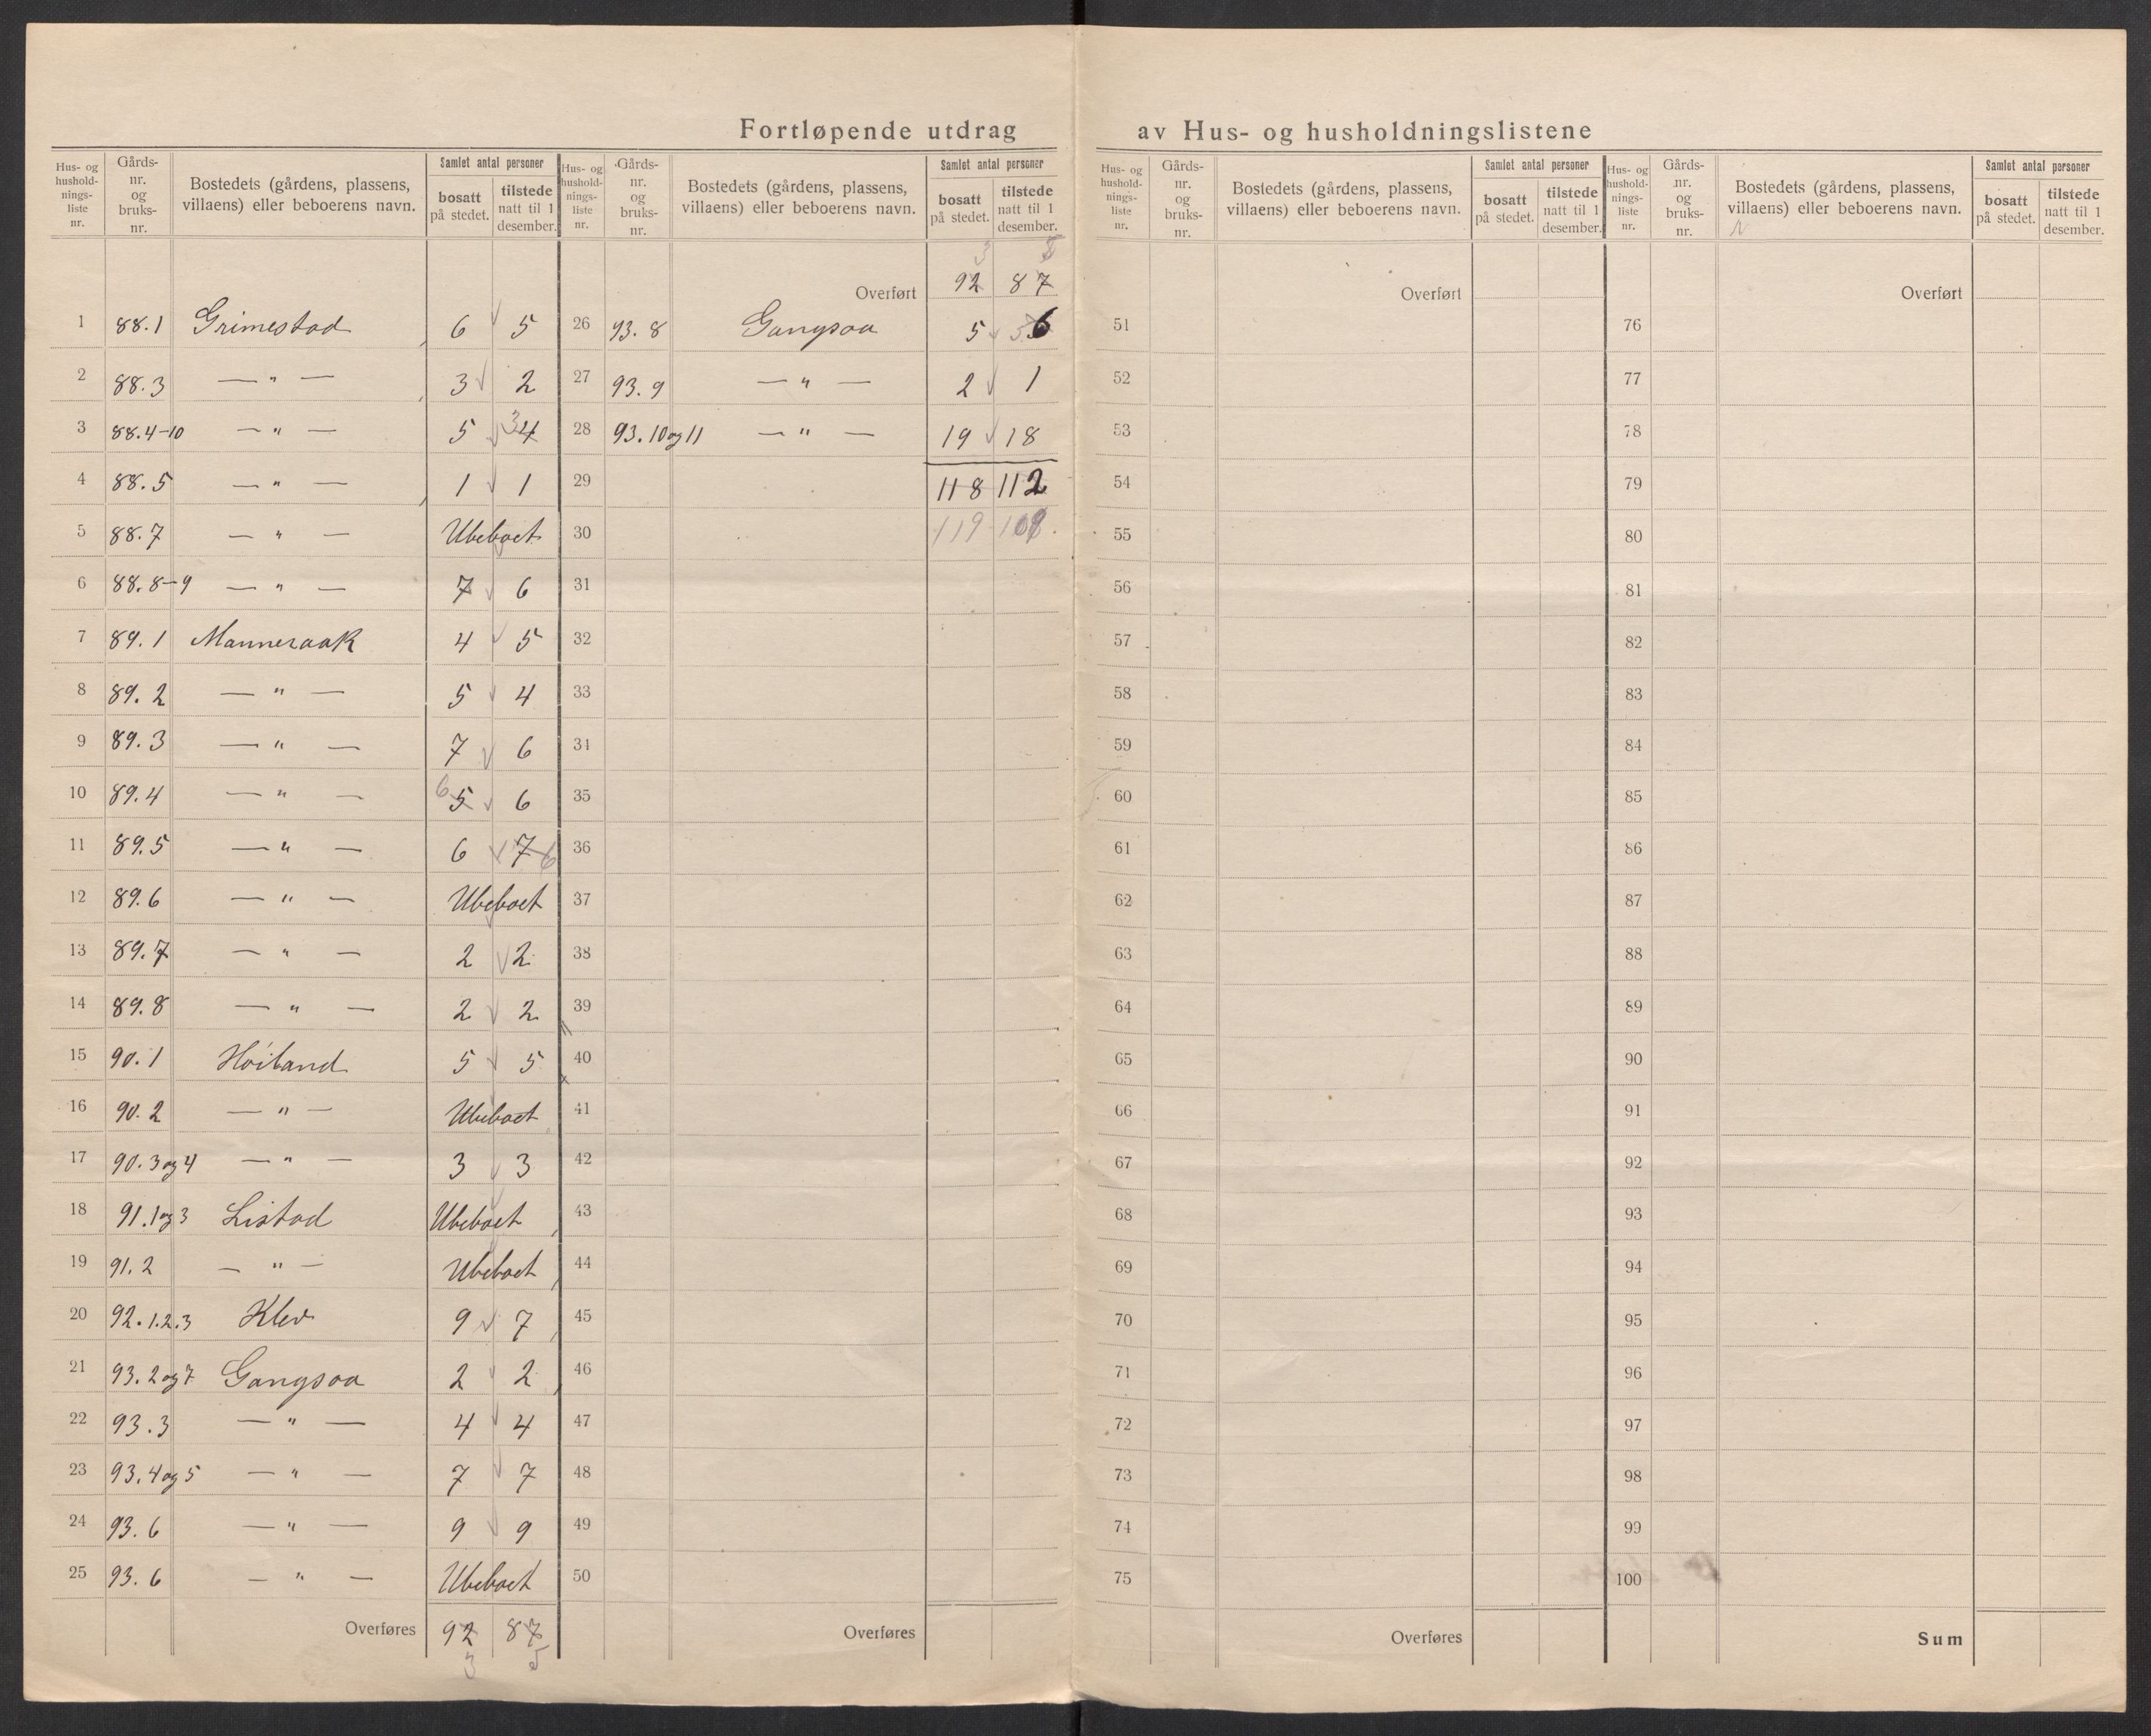 Fortløpende utdrag av Hus- og husholdningslistene
Hus- og husholdnings-liste nr. | Gårds-nr. og bruks-nr. | Bostedets (gårdens, plassens, villaens) eller beboerens navn. | Samlet antal personer | bosatt på stedet. | tilstede natt til 1 desember.
1 88.1 Grimestad 6 5
2 88.3 — " — 3 2
3 88.4-10 — " — 5 3 4
4 88.5 — " — 1 1
5 88.7 — " — Ubeboet
6 88.8-9 — " — 7 6
7 89.1 Manneraak 4 5
8 89.2 — " — 5 4
9 89.3 — " — 7 6
10 89.4 — " — 6 5 6
11 89.5 — " — 6 7 6
12 89.6 — " — Ubeboet
13 89.7 — " — 2 2
14 89.8 — " — 2 2
15 90.1 Höiland 5 5
16 90.2 — " — Ubeboet
17 90.3 og 4 — " — 3 3
18 91.1 og 3 Listad Ubeboet
19 91.2 — " — Ubeboet
20 92.1.2.3 Klev 9 7
21 93.2 og 7 Gangsaa 2 2
22 93.3 — " — 4 4
23 93.4 og 5 — " — 7 7
24 93.6 — " — 9 9
25 93.6 — " — Ubeboet
Overføres 92 87
3 5
Hus- og hushold-nings-liste nr. | Gårds-nr. og bruks-nr. | Bostedets (gårdens, plassens, villaens) eller beboerens navn. | Samlet antal personer | bosatt på stedet. | tilstede natt til 1 desember.
3 5
Overført 92 87
26 93.8 Gangsaa 5 6
27 93.9 — " — 2 1
28 93.10 og 11 — " — 19 18
29 118 112
30 119 108.
31
32
33
34
35
36
37
38
39
40
41
42
43
44
45
46
47
48
49
50
Overføres
Hus- og hushold-nings-liste nr. | Gårds-nr. og bruks-nr. | Bostedets (gårdens, plassens, villaens) eller beboerens navn. | Samlet antal personer | bosatt på stedet. | tilstede natt til 1 desember.
Overført
51
52
53
54
55
56
57
58
59
60
61
62
63
64
65
66
67
68
69
70
71
72
73
74
75
Overføres
Hus- og hushold-nings-liste nr. | Gårds-nr. og bruks-nr. | Bostedets (gårdens, plassens, villaens) eller beboerens navn. | Samlet antal personer | bosatt på stedet. | tilstede natt til 1 desember.
Overført
76
77
78
79
80
81
82
83
84
85
86
87
88
89
90
91
92
93
94
95
96
97
98
99
100
Sum